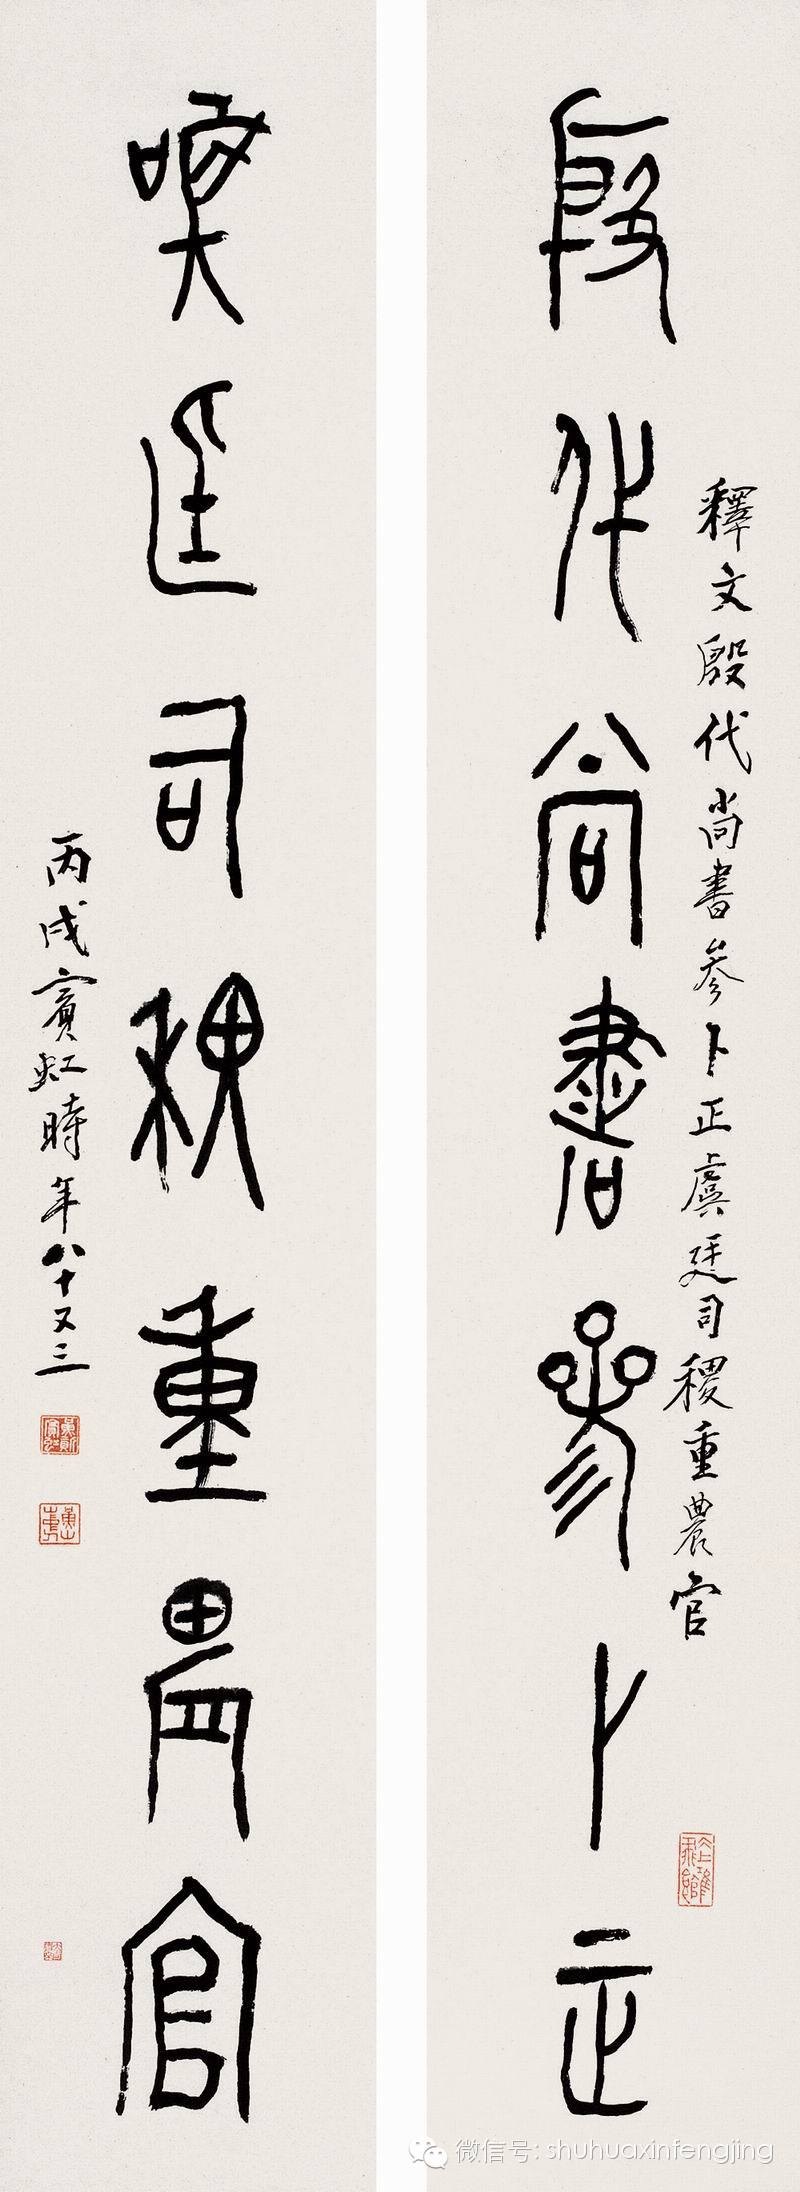 殷代尚書參卜正
釋文殷代尚書參卜正虞廷司稷重農官
虞廷司稷重農官
丙戌賓虹時年八十又三
微信号: shuhuaxinfengjing